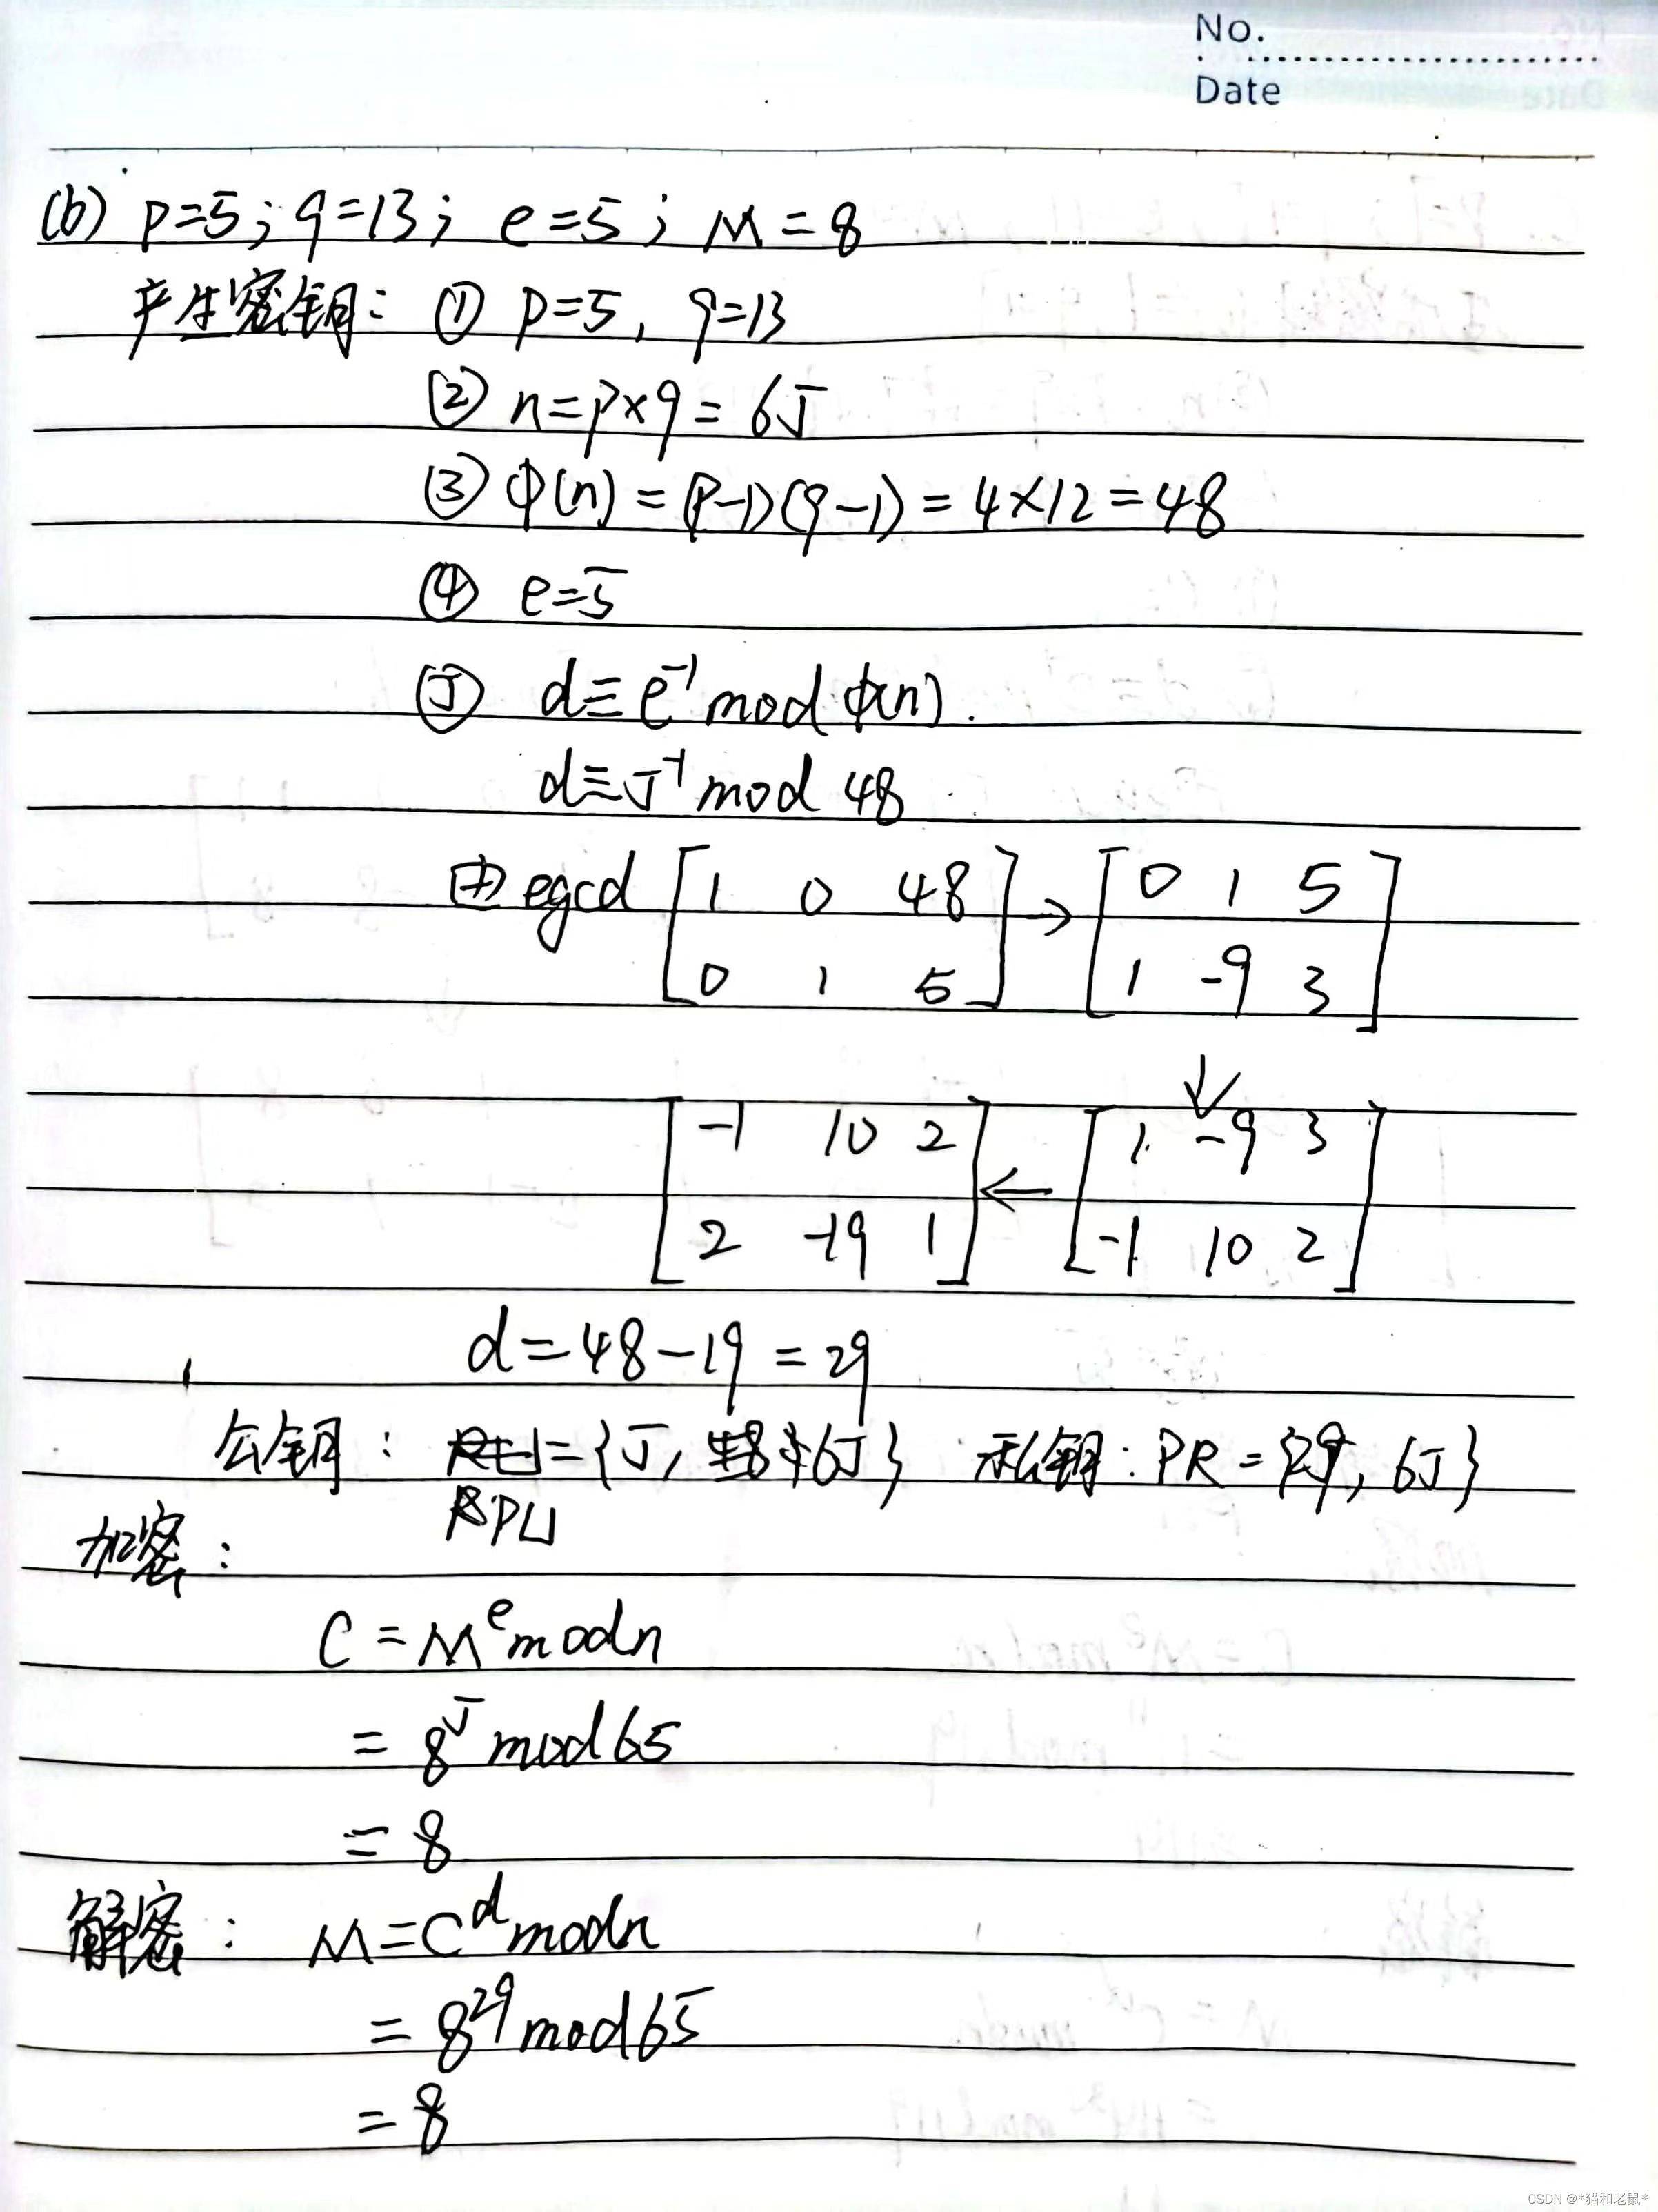 No.
Date
(b) p=5; q=13; e=5; M=8
产生密钥: ① p=5, q=13
② n=p×q=65
③ φ(n)=(p-1)(q-1)=4×12=48
④ e=5
⑤ d≡e⁻¹ mod φ(n).
d≡5⁻¹ mod 48
由egcd [1 0 48 → [0 1 5
0 1 5] 1 -9 3]
↓
[-1 10 2 ← [1 -9 3
2 -19 1] -1 10 2]
d=48-19=29
公钥: ={5, 65} 私钥: PR={29, 65}
PU
加密:
C=Mᵉ mod n
=8⁵ mod 65
=8
解密: M=Cᵈ mod n
=8²⁹ mod 65
=8
CSDN @*猫和老鼠*